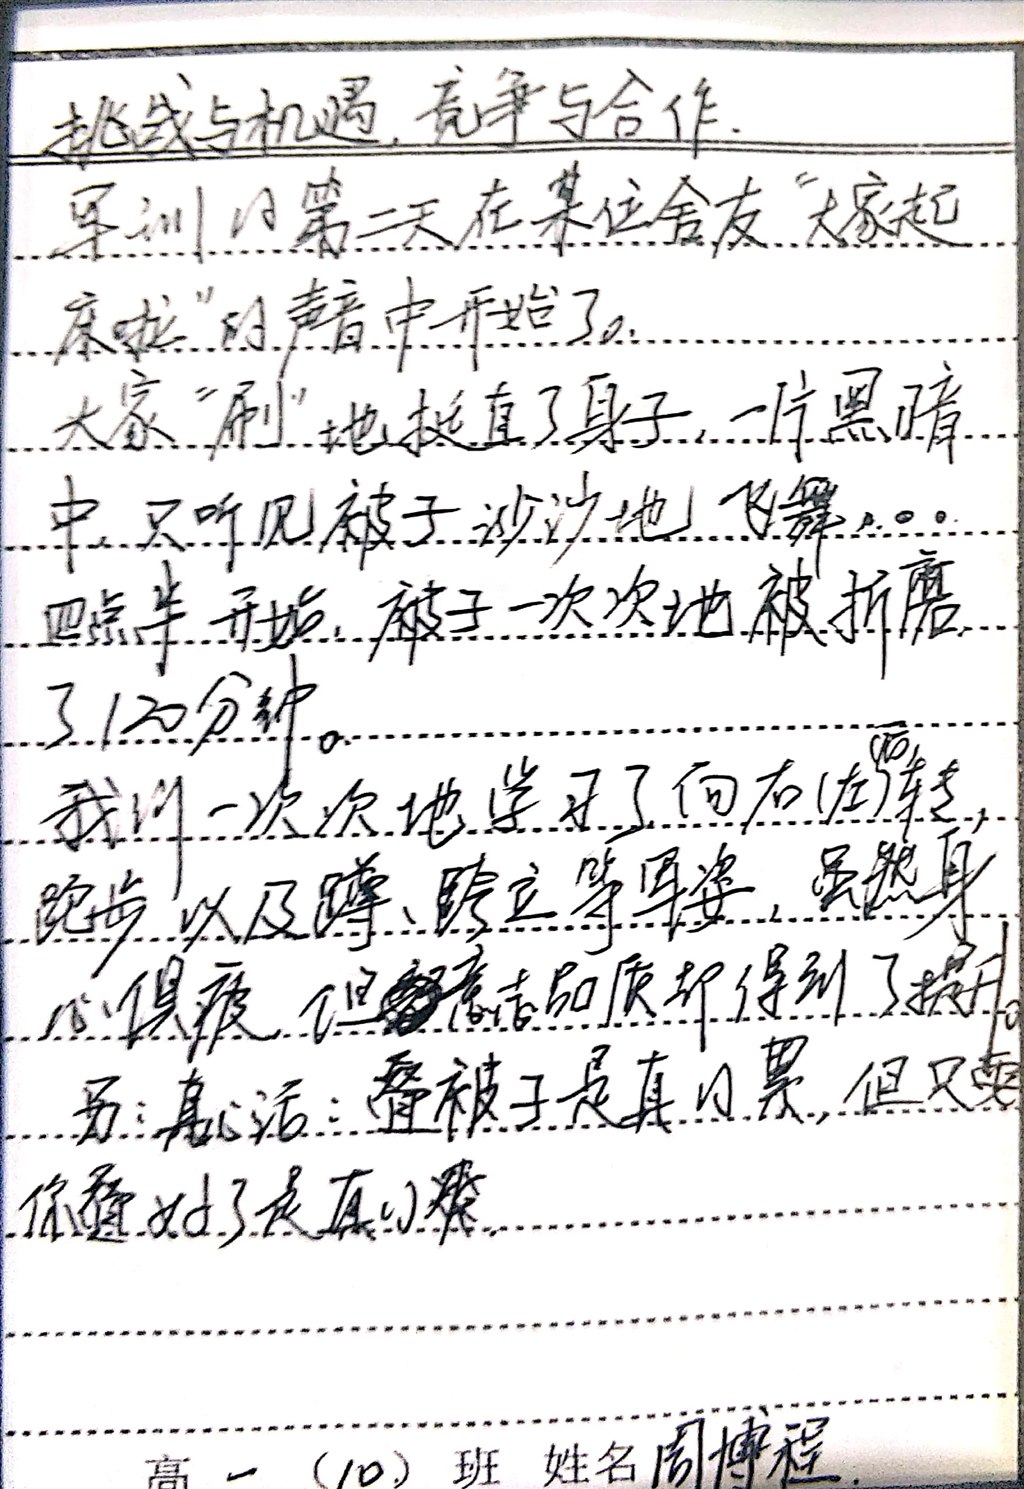 挑战与机遇,竞争与合作.
军训的第二天在某位舍友“大家起
床啦”的声音中开始了。
大家“刷”地挺直了身子,一片黑暗
中,只听见被子沙沙地飞舞......
四点半开始,被子一次次地被折磨
了120分钟。
我们一次次地学习了向右(左)(后)转,
跑步以及蹲、跨立等军姿,虽然身
心俱疲,但意志品质却得到了提升。
另:真心话:叠被子是真的累,但只要
你叠好了是真的爽.
高一(10)班 姓名周博程.